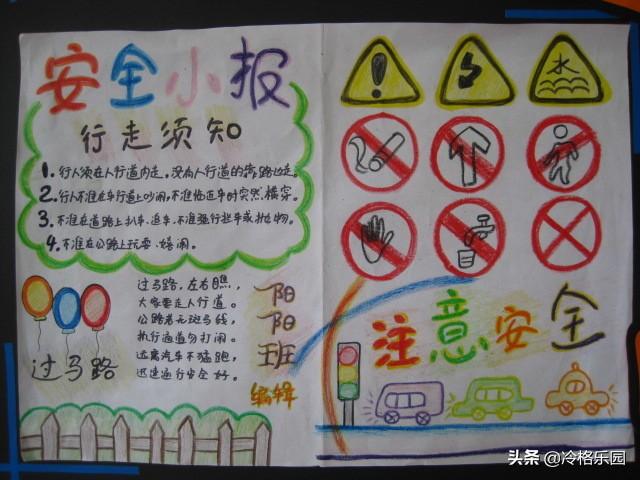 安全小报
行走须知
1.行人须在人行道内走,没有人行道的靠路边走。
2.行人不准在车行道上吵闹,不准临近车时突然横穿。
3.不准在道路上扒车、追车、不准强行拦车或抛物。
4.不准在公路上玩耍、嬉闹。
过马路,左右瞧,
大家要走人行道。
公路若无斑马线,
执行通道勿打闹。
远离汽车不猛跑,
迅速通行安全好。
过马路
阳
阳
班
编辑
水
注意安全
头条 @冷格乐园